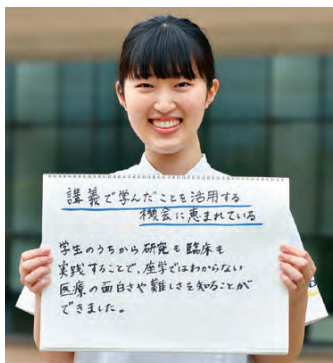 講義で学んだことを活用する
機会に恵まれている
学生のうちから研究も臨床も
実践することで、座学ではわからない
医療の面白さや難しさを知ることが
できました。